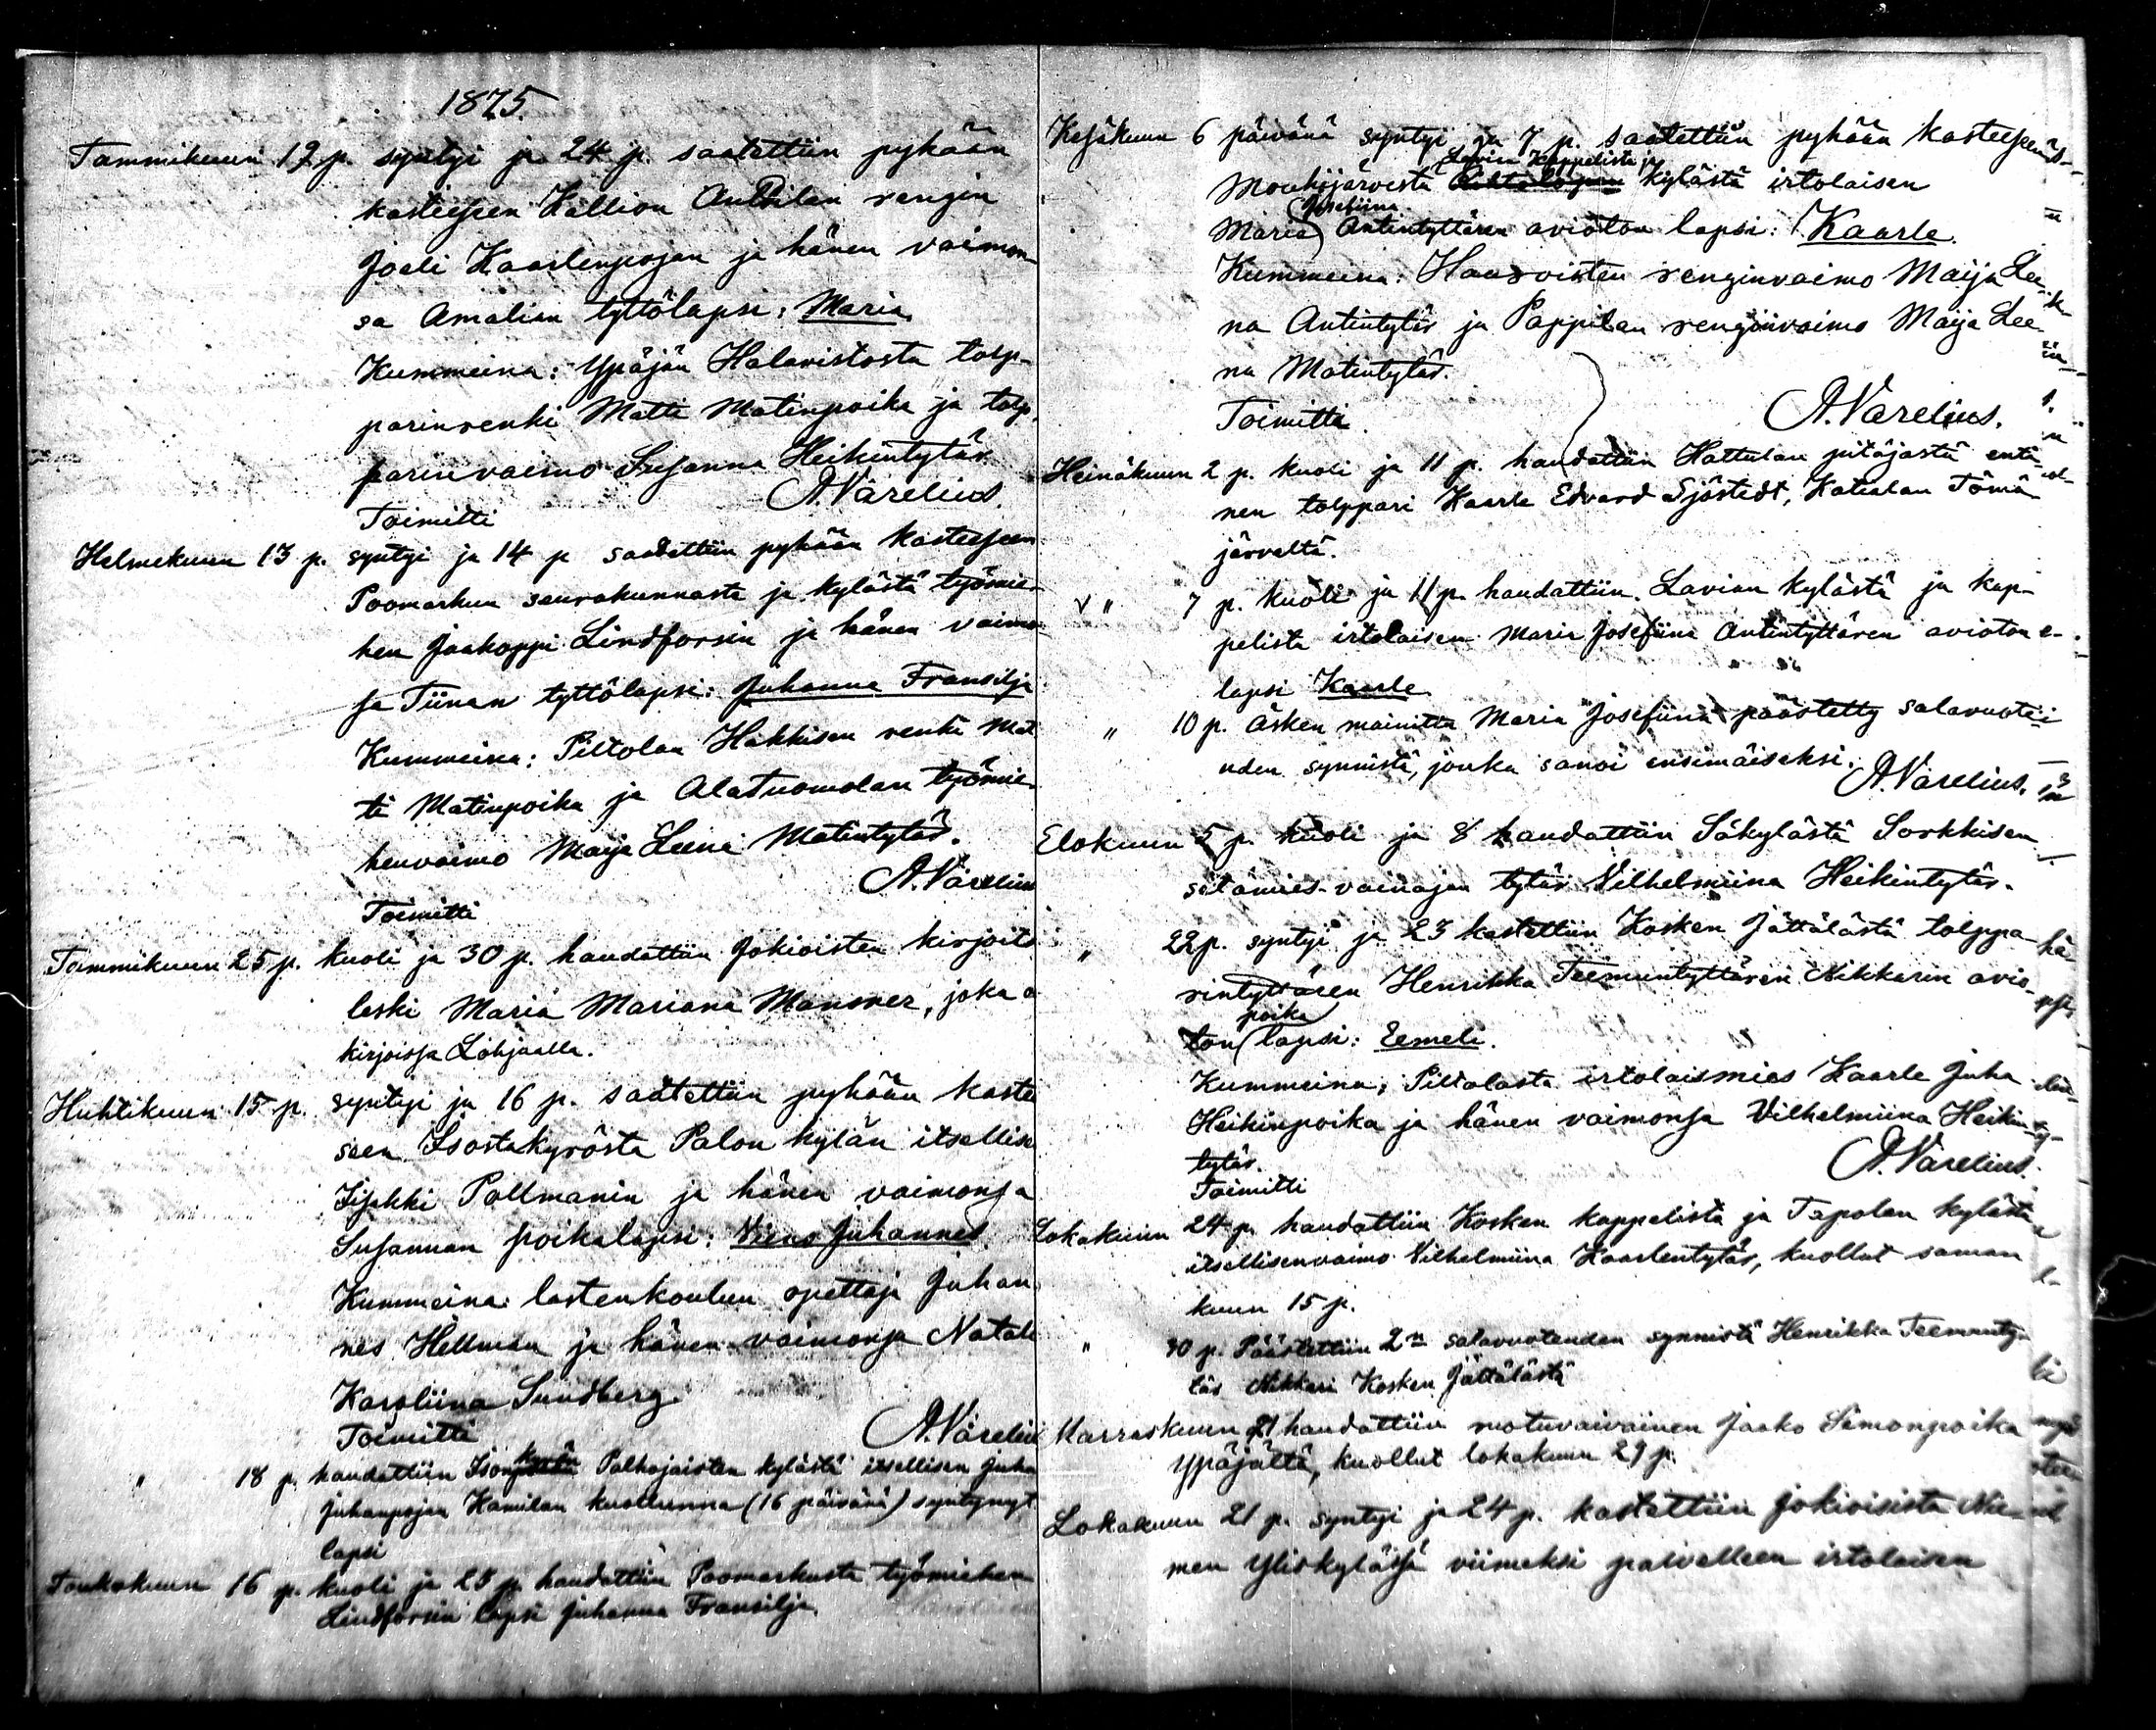 1875.
Tammikuun 19 p. syntyi ja 24 p. saatettiin pyhään
kasteeseen Kallion Anttilan rengin
Joeli Kaarlenpojan ja hänen vaimon-
sa Amalian tyttölapsi: Maria.
Kummeina: Ypäjän Halavistosta tolp-
parinrenki Matti Matinpoika ja tolp-
parinvaimo Susanna Heikintytär
A. Varelius.
Toimitti
Helmekuun 13 p. syntyi ja 14 p saatettiin pyhään kasteeseen
Poomarkun seurakunnasta ja kylästä työmie-
hen Jaakoppi Lindforsin ja hänen vaimon-
sa Tiinan tyttölapsi: Juhanna Fransilja
Kummeina: Piltolan Hakkisen renki Mat
ti Matinpoika ja Alatuomolan työmie-
henvaimo Maija Leena Matintytär.
A. Varelius
Toimitti
Tammikuun 25 p. kuoli ja 30 p. haudattiin Jokioisten kirjoits
leski Maria Mariana Mansner, joka o
kirjoissa Lohjaalla.
Huhtikuun 15 p. syntyi ja 16 p. saatettiin pyhään kaste
seen Isostakyröstä Palon kylän itsellise
Iisakki Pollmanin ja hänen vaimonsa
Susannan poikalapsi: Vieno Juhannes
Kummeina lastenkoulun opettaja Juhan
nes Hellman ja hänen vaimonsa Natali
Karoliina Sundberg.
Toimitti
A. Varelius
" 18 p. haudattiin Isonkyrön Palhojaisten kylästä itsellisen Juha
Juhanpojan Kamilan kuolluna (16 päivänä) syntynyt
lapsi
Toukokuun 16 p. kuoli ja 25 p. haudattiin Poomarkusta työmiehen
Lindforsin lapsi Juhanna Fransilja.
Kesäkuun 6 päivänä syntyi ja 7 p. saatettiin pyhään kasteeseen
Lavian Kappelista ja
Mouhijärvestä kylästä irtolaisen
Josefiina
Maria Antintyttären aviöton lapsi: Kaarle.
Kummeina: Haarvisten renginvaimo Maija Lee-
na Antintytär ja Pappilan renginvaimo Maija Lee-
na Matintytär.
Toimitti
A. Varelius.
Heinäkuun 2 p. kuoli ja 11 p. haudattiin Hattulan pitäjästä enti-
nen tolppari Kaarle Edvard Sjöstedt, Katialan Tömä
järveltä.
" 7 p. kuoli ja 11 p. haudattiin Lavian kylästä ja kap-
pelista irtolaisen Maria Josefiina Antintyttären aviotone
lapsi Kaarle
" 10 p. äsken mainittu Maria Josefiina päästetty salavuotei
uden synnistä, jonka sanoi ensimäiseksi.
A. Varelius.
Elokuun 5 p. kuoli ja 8 haudattiin Säkylästä Sorkkisen
sotamies-vainajan tytär Vilhelmiina Heikintytär.
" 22 p. syntyi ja 23 kastettiin Kosken Jättälästä tolppa-
rintyttären Henrikka Teemuntyttären Nikkarin avio-
poika
ton lapsi: Eemeli.
Kummeina: Piltolasta irtolaismies Kaarle Juha
Heikinpoika ja hänen vaimonsa Vilhelmiina Heikin-
tytär.
A. Varelius.
Toimitti
Lokakuun 24 p. haudattiin Kosken kappelista ja Tapolan kylästä
itsellisenvaimo Vilhelmiina Kaarlentytär, kuollut saman
kuun 15 p.
" 30 p. Päästettiin 2n salavuoteuden synnistä Henrikka Teemunty-
tär Nikkari Kosken Jättälästä
Marraskuun 21 haudattiin ruotuvaivainen Jaako Simonpoika
Ypäjältä, kuollut lokakuun 29 p.
Lokakuun 21 p. syntyi ja 24 p. kastettiin Jokioisista Nie-
men Yliskylässä viimeksi palvelleen irtolaisen